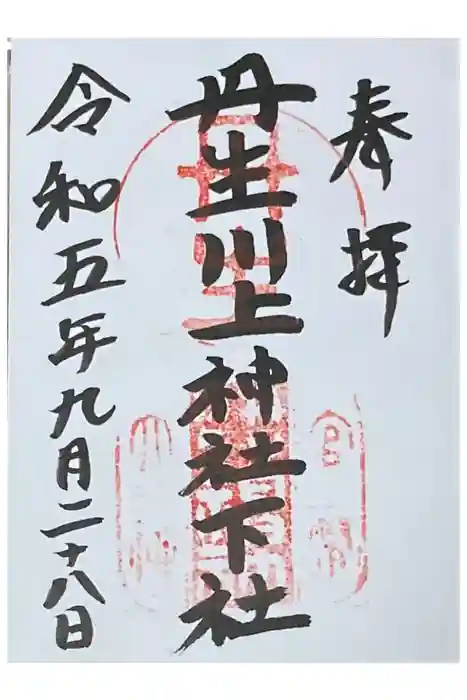 奉拝
丹生川上神社下社
令和五年九月二十八日